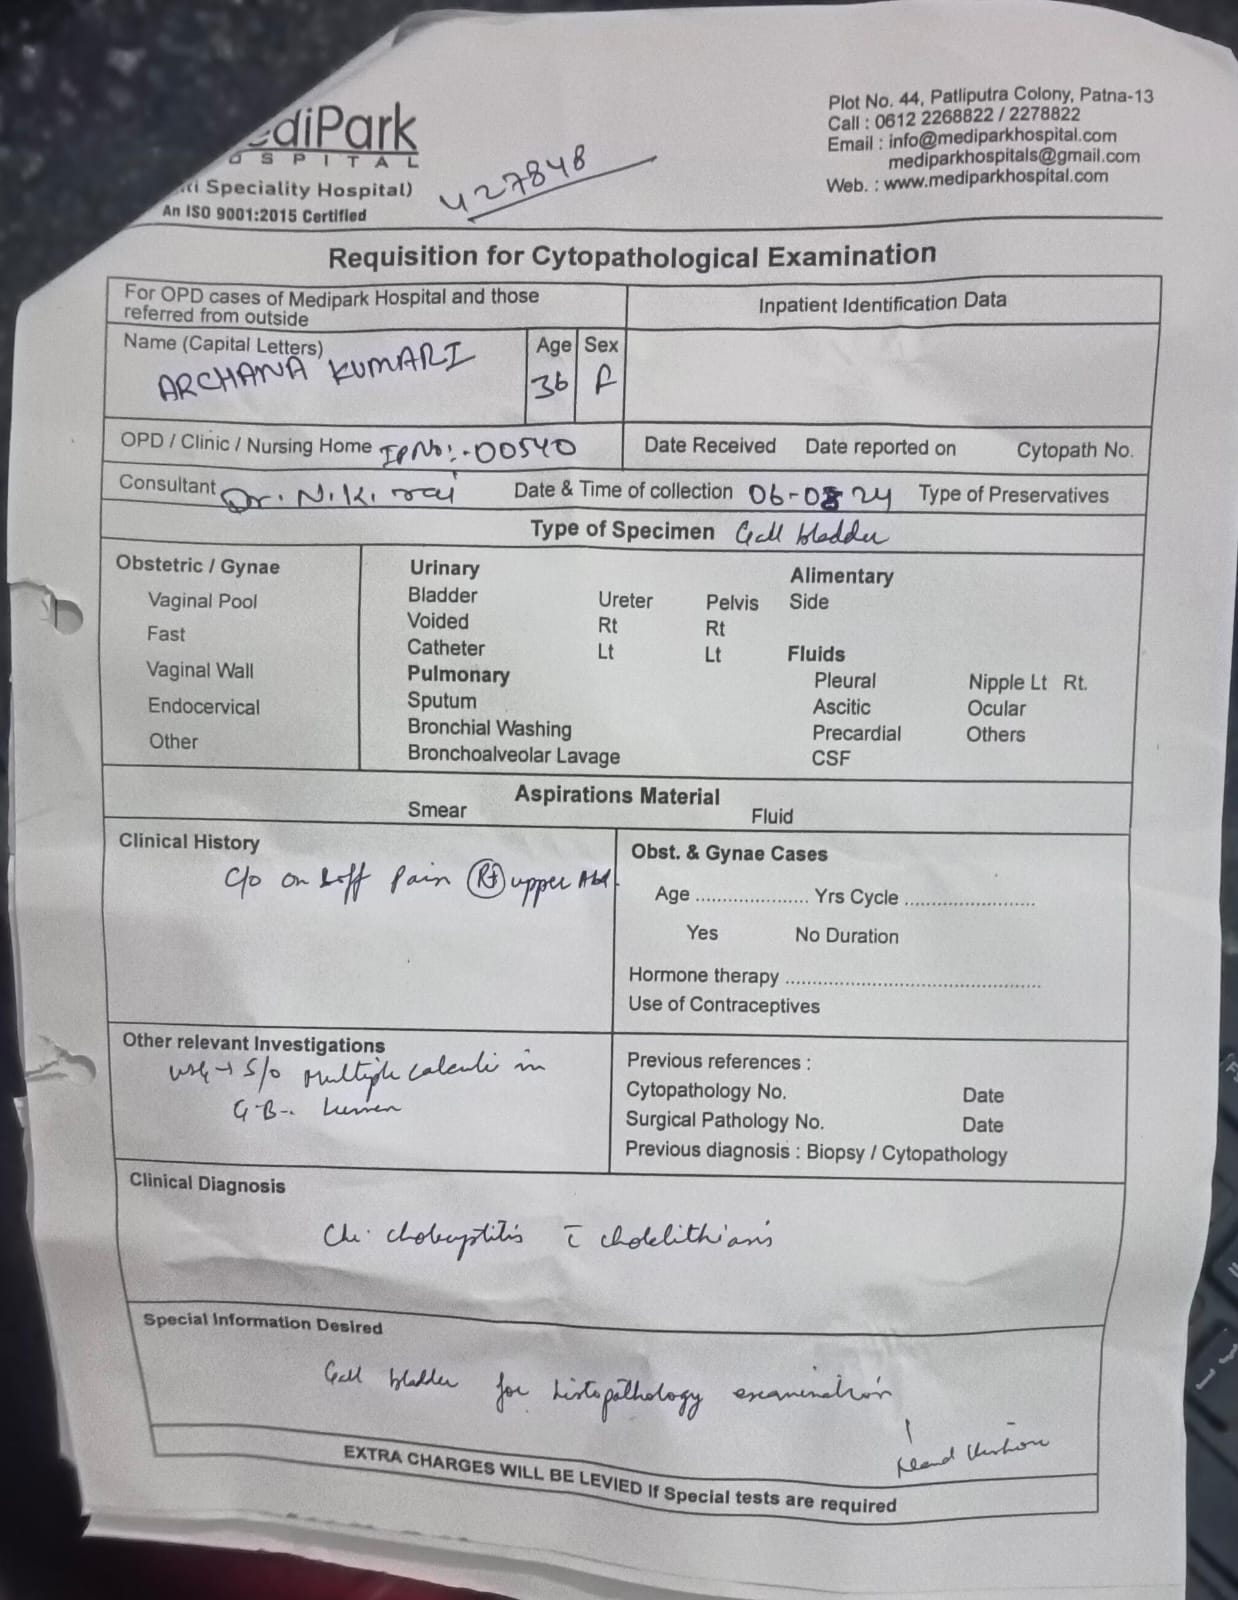 diPark
OSPITAL
Speciality Hospital)
An ISO 9001:2015 Certified
427848
Plot No. 44, Patliputra Colony, Patna-13
Call : 0612 2268822 / 2278822
Email : info@mediparkhospital.com
mediparkhospitals@gmail.com
Web. : www.mediparkhospital.com
Requisition for Cytopathological Examination
For OPD cases of Medipark Hospital and those
referred from outside
Inpatient Identification Data
Name (Capital Letters)
ARCHANA KUMARI
Age
36
Sex
F
OPD / Clinic / Nursing Home IPNo:-00540
Date Received Date reported on Cytopath No.
Consultant Dr. N.K. raj Date & Time of collection 06-08 24 Type of Preservatives
Type of Specimen Gall bladder
Obstetric / Gynae
Vaginal Pool
Fast
Vaginal Wall
Endocervical
Other
Urinary
Bladder Ureter Pelvis
Voided Rt Rt
Catheter Lt Lt
Pulmonary
Sputum
Bronchial Washing
Bronchoalveolar Lavage
Alimentary
Side
Fluids
Pleural Nipple Lt Rt.
Ascitic Ocular
Precardial Others
CSF
Aspirations Material
Smear Fluid
Clinical History
c/o on & off Pain Rt upper Abd.
Obst. & Gynae Cases
Age ..................... Yrs Cycle ........................
Yes No Duration
Hormone therapy ...............................................
Use of Contraceptives
Other relevant Investigations
USG → S/o Multiple calculi in
G.B. lumen
Previous references :
Cytopathology No. Date
Surgical Pathology No. Date
Previous diagnosis : Biopsy / Cytopathology
Clinical Diagnosis
Chr. cholecystitis c cholelithiasis
Special Information Desired
Gall bladder for histopathology examination
EXTRA CHARGES WILL BE LEVIED If Special tests are required